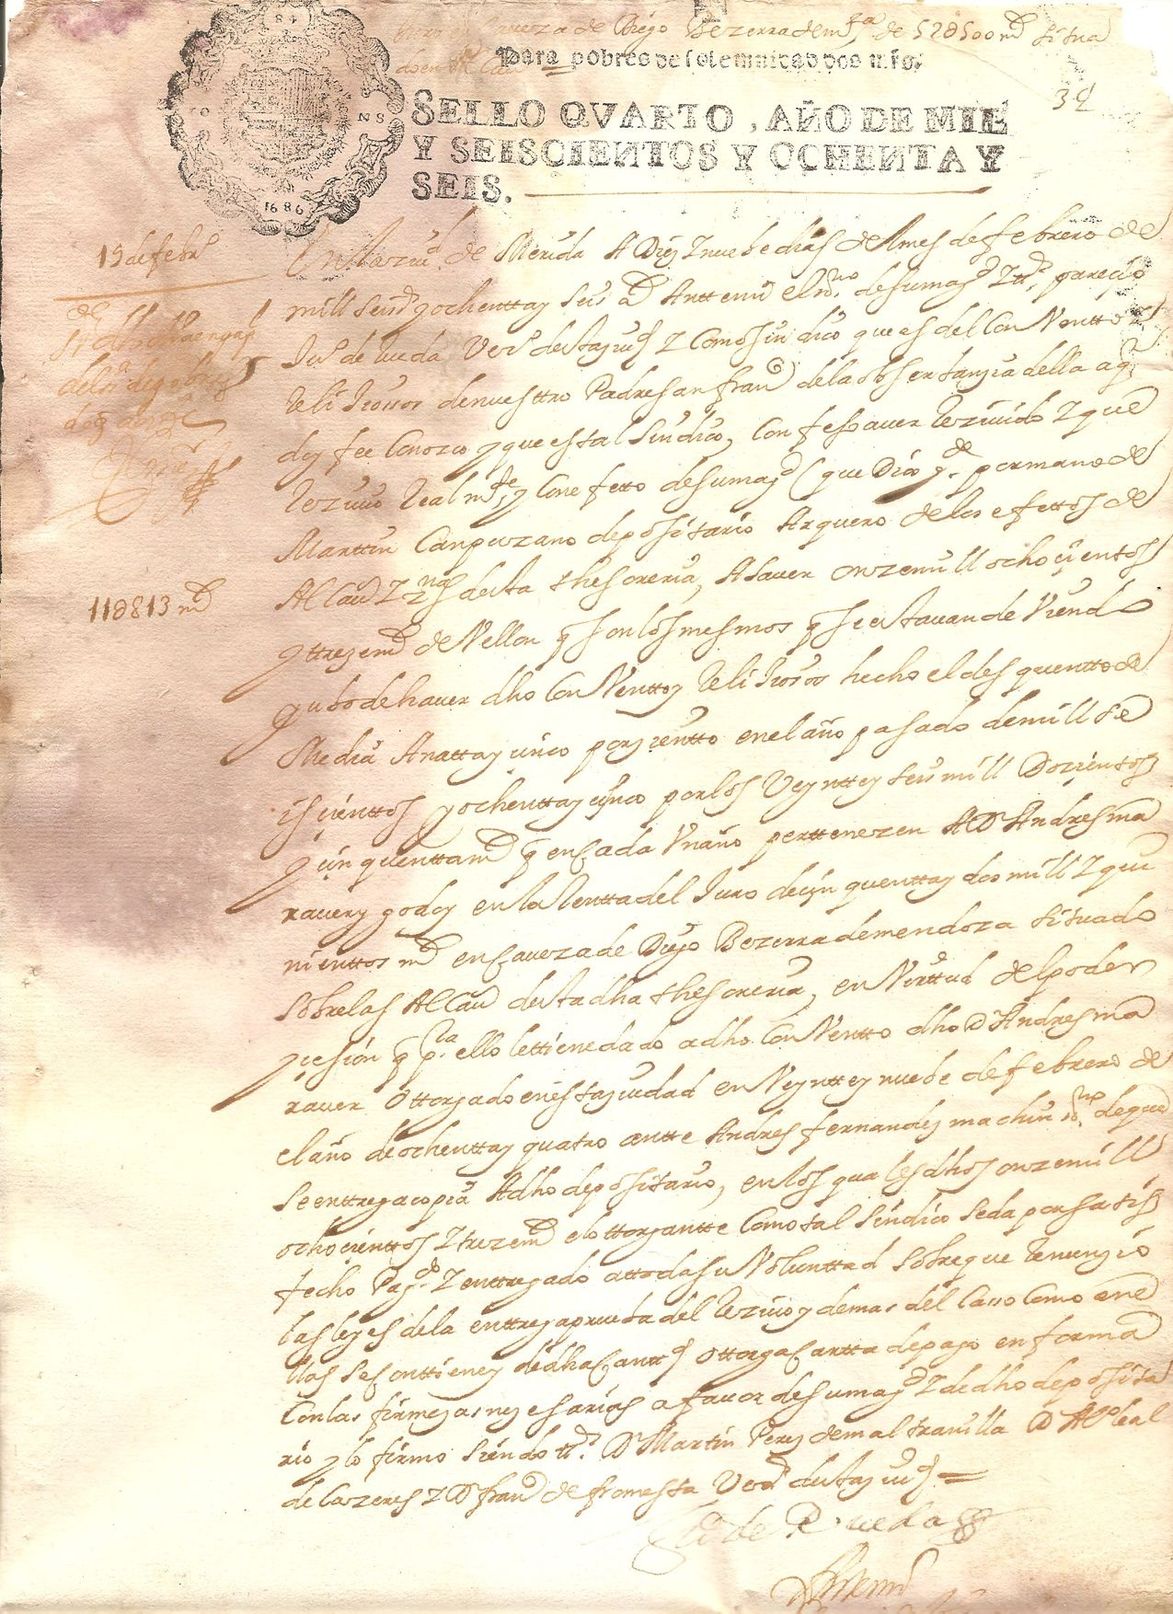 Juro caveza de Diego Bezerra de md.ª de 52U500 md situa
do en
Para pobres de solemnidad dos mrs.
34
SELLO QVARTO, AÑO DE MIL
Y SEISCIENTOS Y OCHENTA Y
SEIS.
1686
19 de febr
11U813 md
En la ziud de Merida A Diez Y nuebe dias del mes de febrero de
mill seisº y ochentta y seis aº Antte mi el ssno. de su magd parezio
Juº de Rueda Vecº desta ziud Y Como sindico que es del Conventto
Relijiosos de nuesttro Padre san franco de la obserbanzia della a q
doy fee Conozco y que es tal Sindico, Confeso aver Rezivido Y que
Rezivio Realmte y Con efetto de su magd (que Dios gde. por mano de
Marttin Canpuzano depositario Arquero de los efettos de
Alcavas desta thesoreria, A saver onze mill ochozientos
y treze md de Vellon q son los mesmos q se estavan deviendo
de haver dho Conventto y Relijiosos hecho el desquentto de
Media Anatta y cinco por zientto en el año pasado de mill se
iscienttos y ochentta y cinco por los Veyntte y seis mill Dozientos
y cinquentta md q en cada Un año perttenezen A D Andres ma
raver y godoy en la Rentta del Juro de cinquentta y dos mill Y qui
nienttos md en caveza de Diego Bezerra de mendoza situado
sobre las Alcavas desta dha thesoreria, en Virttud del poder
y cesion q pa. ello le ttiene dado a dho Conventto dho D Andres ma
raver Ottorgado en esta ziudad en Veyntte y nuebe de febrero de
el año de ochentta y quatro antte Andres fernandez machin ssno. de que
se enttrega copia A dho depositario, en los quales dhos onze mill
ochocienttos Y treze md el ottorgantte Como tal Sindico se da por satis
fecho Pagdo. Y enttregado a ttoda su Volunttad sobre que Renunzio
las leyes de la enttrega prueba del Rezivo y demas del Caso Como en e
llas se conttiene y de dha Cantd ottorga Cartta de pago en forma
Con las firmezas nezesarias a favor de su magd Y de dho deposita
rio y lo firmo siendo tts. D Martin Perez de mal tranilla D Alº leal
de Cazeres Y D franco de fromesta Vecs desta ziud =
Juº de Rueda
Ante mi